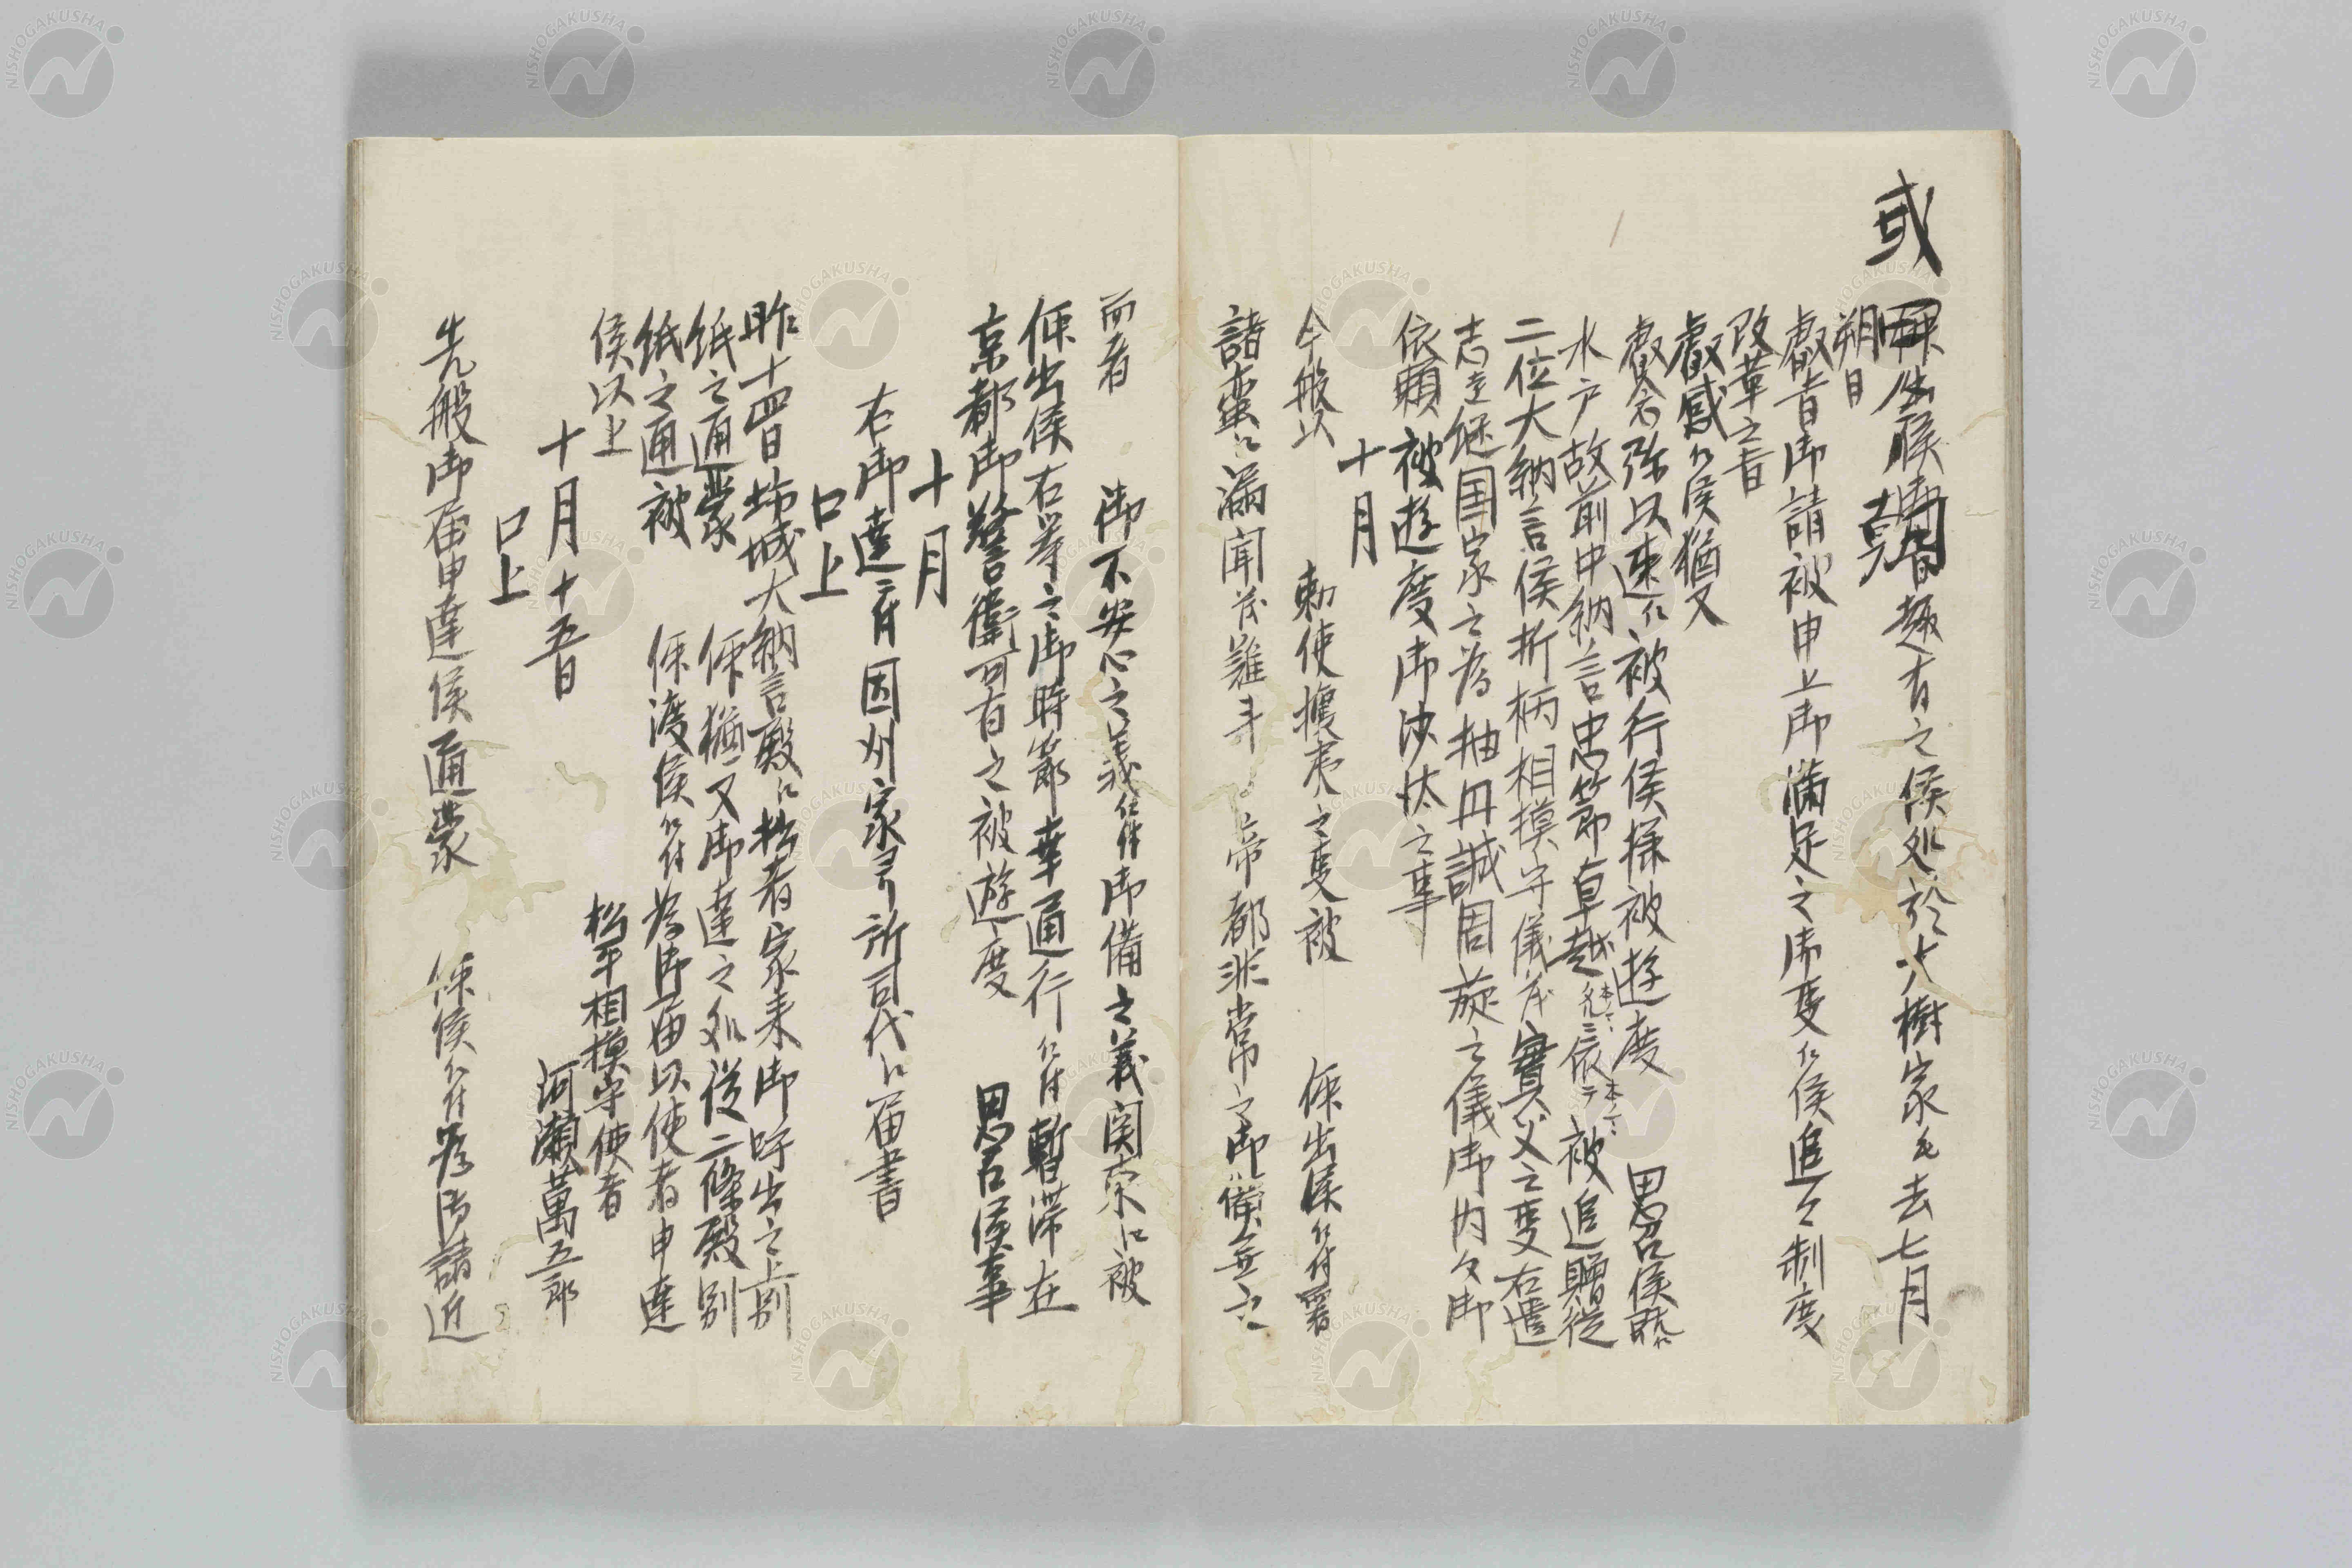 或
朔日
叡旨御請被申上御満足之御事ニ候追々制度
改革之旨
叡感ニ候猶又
叡念弥以速ニ被行候様被遊度 思召候
水戸故前中納言忠節卓越 依テ被追贈従
二位大納言候折柄相摸守儀茂實父之事右遺
志を継国家之為抽丹誠周旋之儀御内々御
依頼被遊度御沙汰之事
十月
今般以 勅使攘夷之事被 仰出候ニ付署
諸蛮ニ漏聞茂難斗 帝都非常之御備無之
而者 御不安心之義ニ付御備之義関東江被
仰出候右等之御時節幸通行ニ付暫滞在
京都御警衛可有之被遊度 思召候事
十月
右御達ニ付因州家ゟ所司代江届書
口上
昨十四日坊城大納言殿江拙者家来御呼出之上別
紙之通蒙 仰猶又御達之処従二條殿別
紙之通被 仰渡候ニ付為御届以使者申達
候以上
十月十五日
松平相摸守使者
河瀬萬五郎
口上
先般御届申達候通蒙 仰候ニ付為御請近
NISHOGAKUSHA